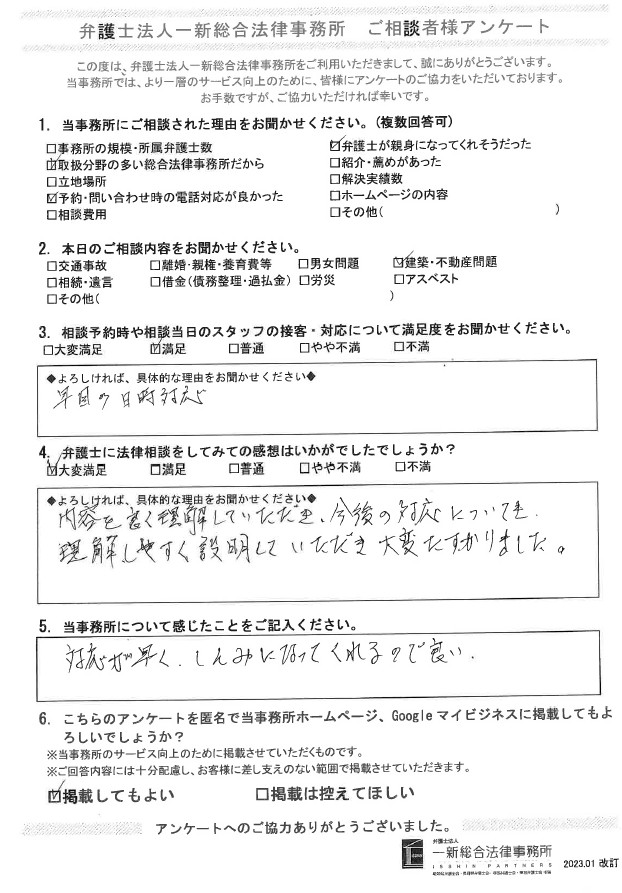 弁護士法人一新総合法律事務所　ご相談者様アンケート
この度は、弁護士法人一新総合法律事務所をご利用いただきまして、誠にありがとうございます。
当事務所では、より一層のサービス向上のために、皆様にアンケートのご協力をいただいております。
お手数ですが、ご協力いただければ幸いです。
1. 当事務所にご相談された理由をお聞かせください。(複数回答可)
□事務所の規模・所属弁護士数　☑弁護士が親身になってくれそうだった
☑取扱分野の多い総合法律事務所だから　□紹介・薦めがあった
□立地場所　□解決実績数
☑予約・問い合わせ時の電話対応が良かった　□ホームページの内容
□相談費用　□その他(　)
2. 本日のご相談内容をお聞かせください。
□交通事故　□離婚・親権・養育費等　□男女問題　☑建築・不動産問題
□相続・遺言　□借金(債務整理・過払金)　□労災　□アスベスト
□その他(　)
3. 相談予約時や相談当日のスタッフの接客・対応について満足度をお聞かせください。
□大変満足　☑満足　□普通　□やや不満　□不満
◆よろしければ、具体的な理由をお聞かせください◆
早目の日時対応
4. 弁護士に法律相談をしてみての感想はいかがでしたでしょうか？
☑大変満足　□満足　□普通　□やや不満　□不満
◆よろしければ、具体的な理由をお聞かせください◆
内容を良く理解していただき、今後の対応についても、
理解しやすく説明していただき大変たすかりました。
5. 当事務所について感じたことをご記入ください。
対応が早く、しんみになってくれるので良い、
6. こちらのアンケートを匿名で当事務所ホームページ、Googleマイビジネスに掲載してもよ
ろしいでしょうか？
※当事務所のサービス向上のために掲載させていただくものです。
※ご回答内容には十分配慮し、お客様に差し支えのない範囲で掲載させていただきます。
☑掲載してもよい　□掲載は控えてほしい
アンケートへのご協力ありがとうございました。
弁護士法人
一新総合法律事務所
ISSHIN PARTNERS
2023.01 改訂